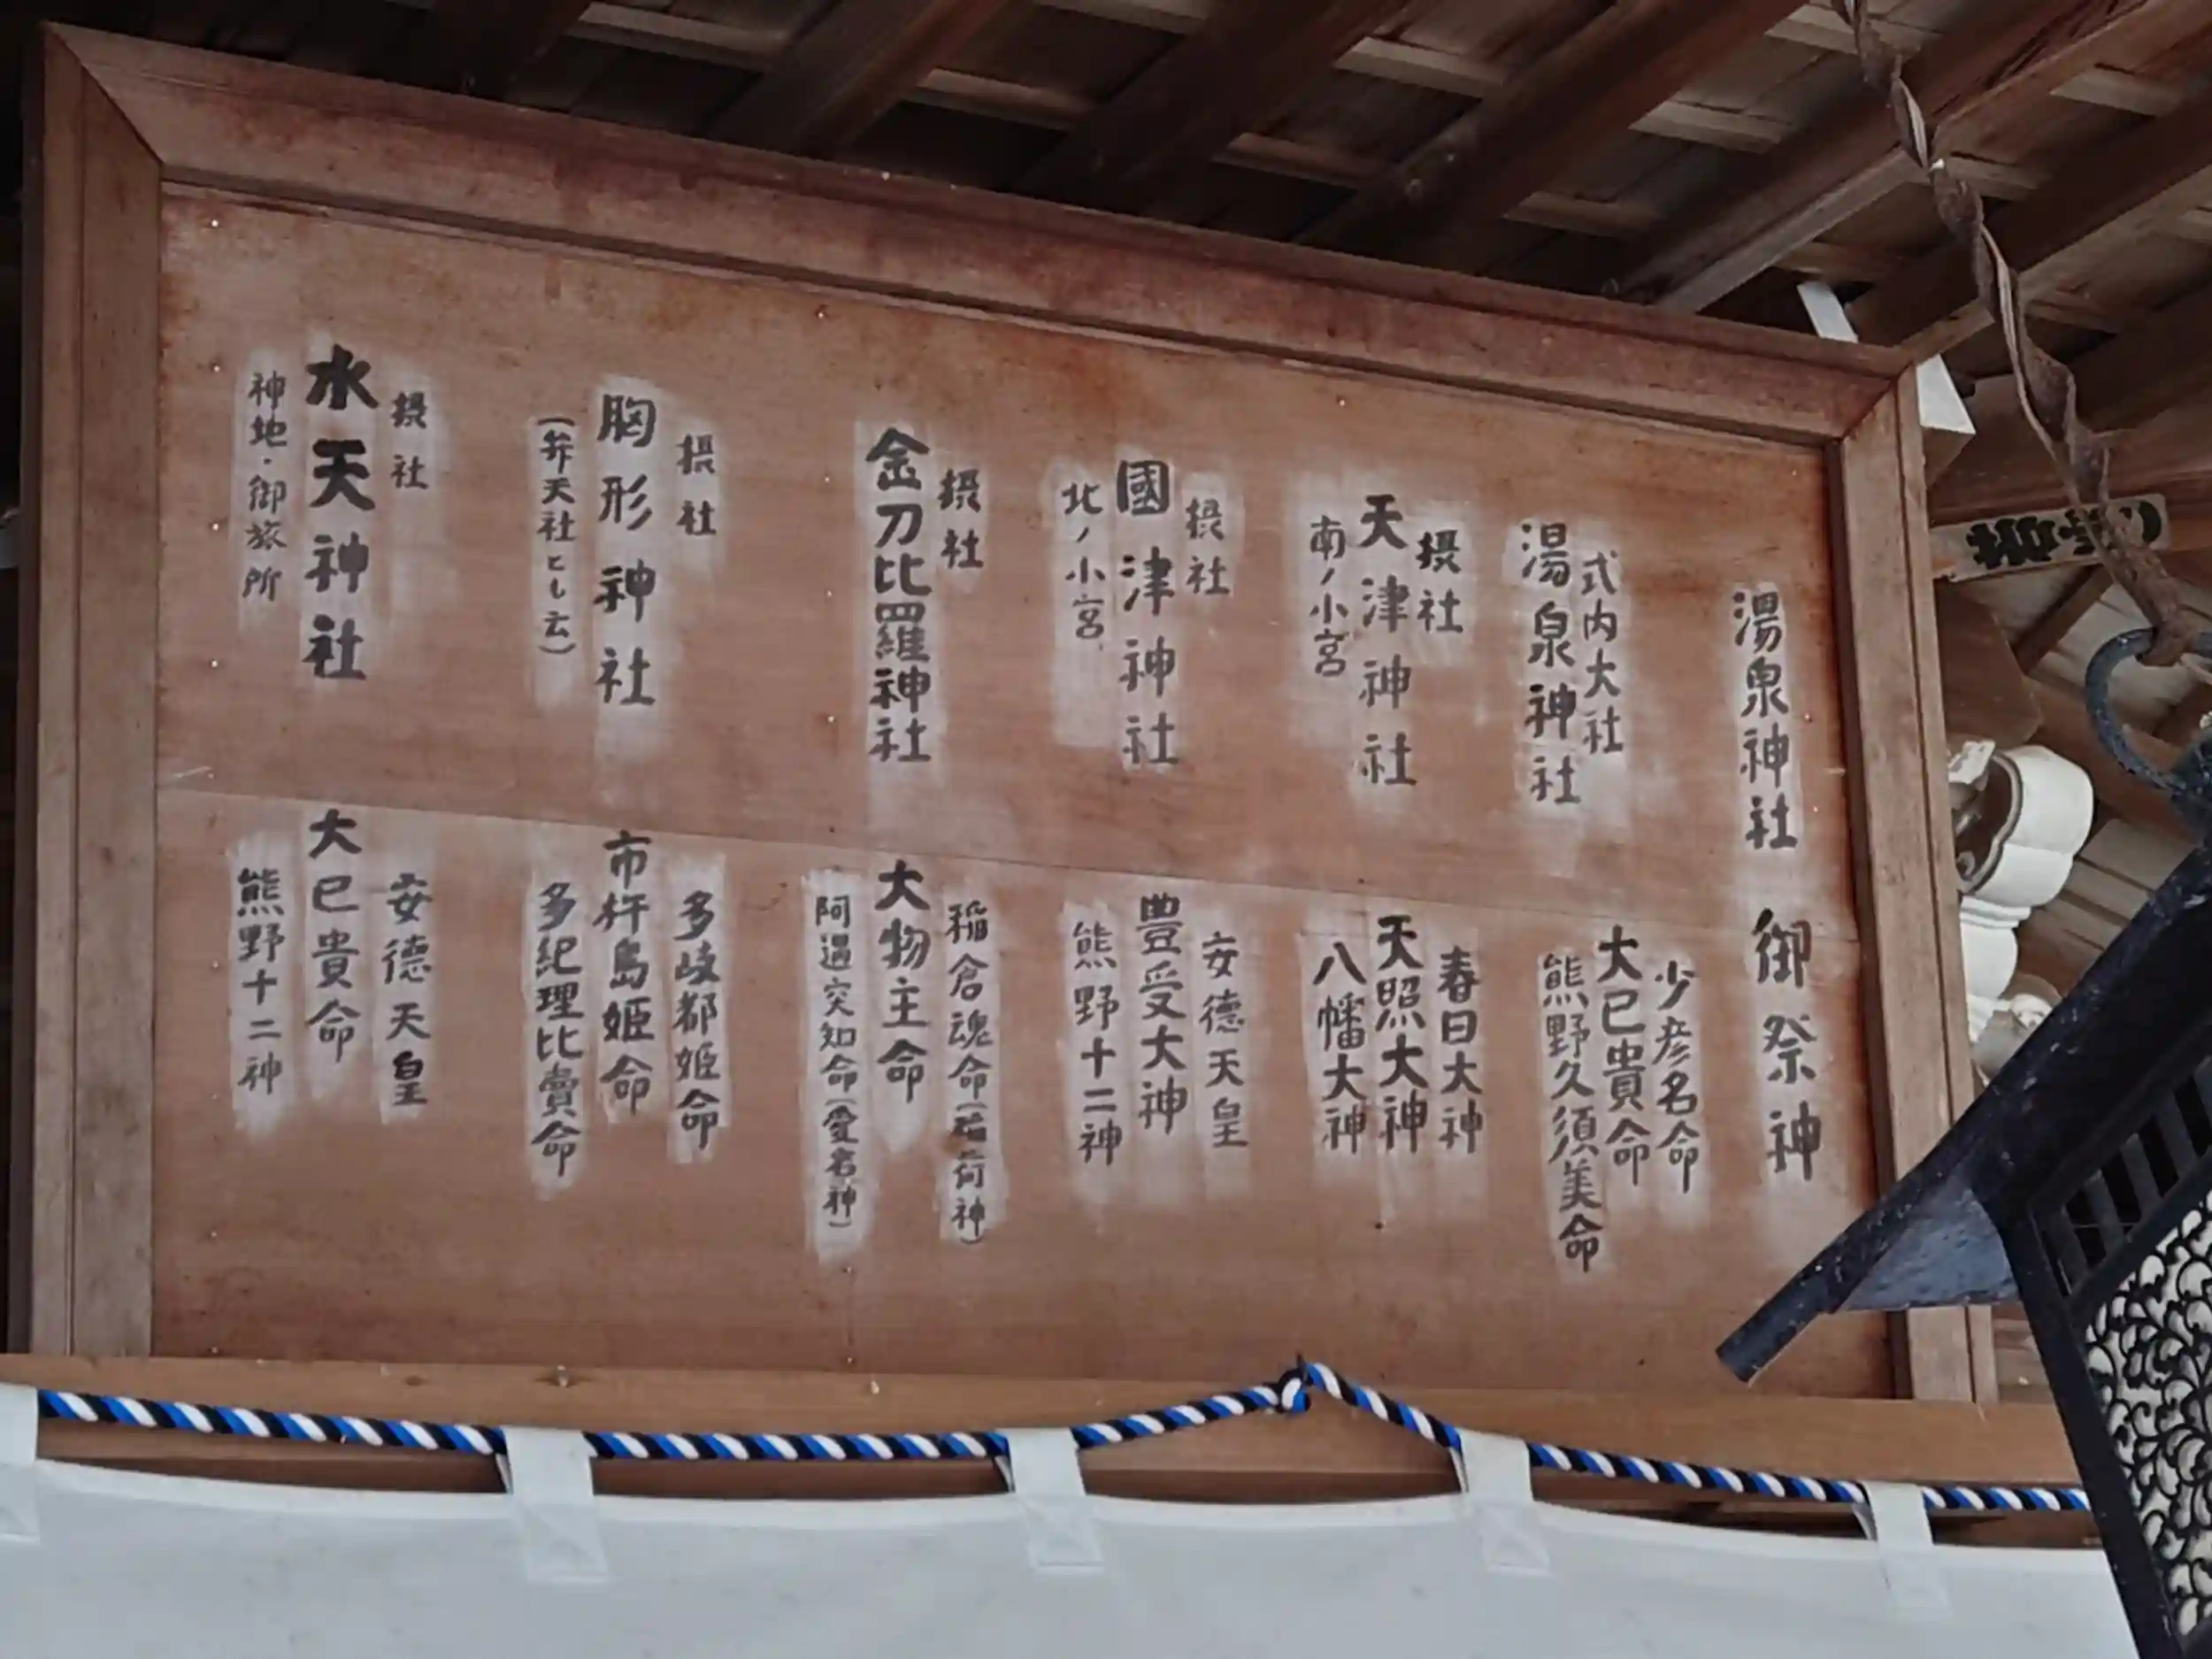 湯泉神社 御祭神
式内大社
湯泉神社
少彦名命
大已貴命
熊野久須美命
摂社
天津神社
南ノ小宮
春日大神
天照大神
八幡大神
摂社
國津神社
北ノ小宮
安徳天皇
豊受大神
熊野十二神
摂社
金刀比羅神社
稲倉魂命(稲荷神)
大物主命
阿遇突知命(愛宕神)
摂社
胸形神社
(弁天社とも云)
多岐都姫命
市杵島姫命
多紀理比賣命
摂社
水天神社
神地・御旅所
安徳天皇
大已貴命
熊野十二神